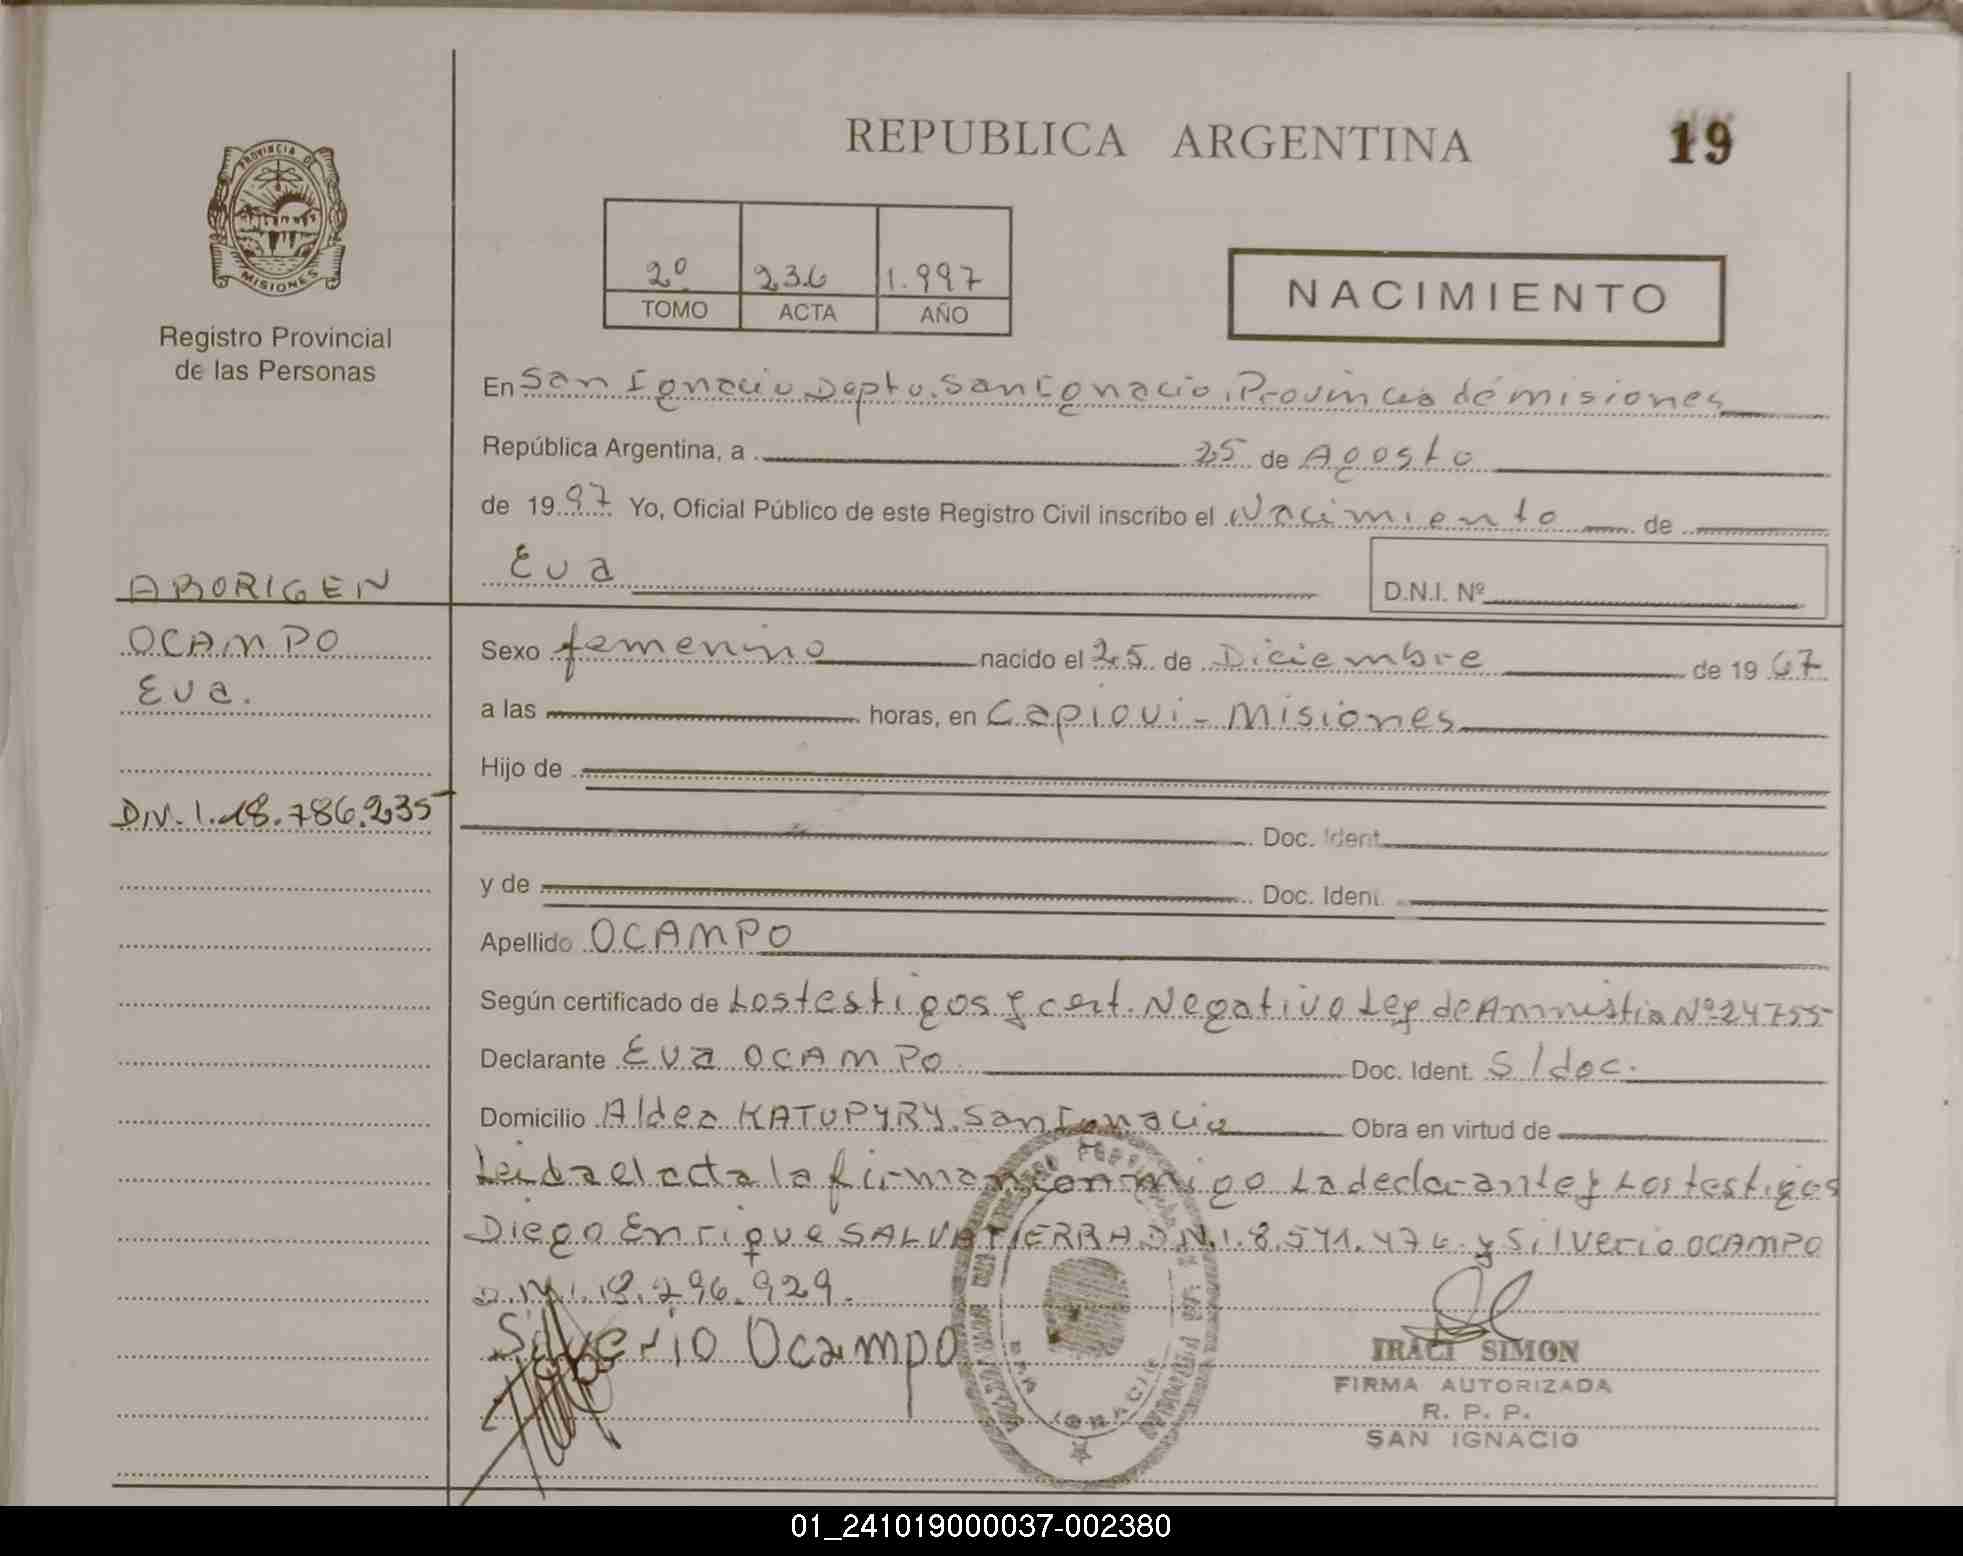 REPUBLICA ARGENTINA
19
PROVINCIA DE
MISIONES
Registro Provincial
de las Personas
2º 236 1.997
TOMO ACTA AÑO
NACIMIENTO
En San Ignacio Depto. San Ignacio, Provincia de misiones
República Argentina, a 25 de Agosto
de 1997 Yo, Oficial Público de este Registro Civil inscribo el Nacimiento de
Eva
D.N.I. Nº
ABORIGEN
OCAMPO
Eva.
D.N.I.18.786.235
Sexo femenino nacido el 25 de Diciembre de 1967
a las horas, en Capiovi - Misiones
Hijo de
Doc. Ident.
y de Doc. Ident.
Apellido OCAMPO
Según certificado de Los testigos y cert. Negativo Ley de Amnistia Nº 24755
Declarante Eva OCAMPO Doc. Ident. S/doc.
Domicilio Aldea KATUPYRY. San Ignacio Obra en virtud de
Leida el acta la firman conmigo La declarante y Los testigos
Diego Enrique SALVATIERRA D.N.I. 8.541.476 y Silverio OCAMPO
D.N.I. 18.296.929.
Silverio Ocampo
IRACI SIMON
FIRMA AUTORIZADA
R. P. P.
SAN IGNACIO
01_241019000037-002380